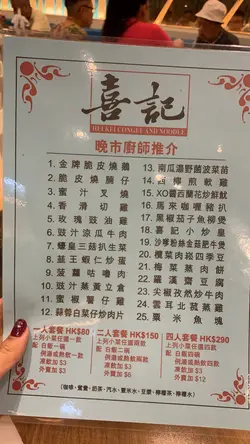 喜記
HEI KEI CONGEE AND NOODLE
晚市廚師推介
1. 金牌脆皮燒鵝
2. 脆皮燒腩仔
3. 蜜汁叉燒
4. 香滑切雞
5. 玫瑰豉油雞
6. 豉汁涼瓜牛肉
7. 蠔皇三菇扒生菜
8. 豉王蝦仁炒蛋
9. 菠蘿咕嚕肉
10. 豉汁蒸黃立倉
11. 蜜椒薯仔雞
12. 蒜蓉白菜仔炒肉片
13. 南瓜湯野菌波菜苗
14. 西檸煎軟雞
15. XO醬西蘭花炒鮮魷
16. 馬來咖喱豬扒
17. 黑椒茄子魚柳煲
18. 喜記小炒皇
19. 沙嗲粉絲金菇肥牛煲
20. 欖菜肉崧四季豆
21. 梅菜蒸肉餅
22. 羅漢齋豆腐
23. 尖椒孜然炒牛肉
24. 雲耳北菇蒸雞
25. 粟米魚塊
一人套餐 HK$80
上列小菜任選一款
配 白飯一碗
例湯或熱飲一款
凍飲加 $3
外賣加 $3
二人套餐 HK$150
上列小菜任選兩款
配 白飯二碗
例湯或熱飲兩款
凍飲加 $3
外賣加 $6
四人套餐 HK$290
上列小菜任選四款
配 白飯四碗
例湯或熱飲四款
凍飲加 $3
外賣加 $12
(咖啡、鴛鴦、奶茶、汽水、薏米水、豆漿、檸檬茶、檸檬水)